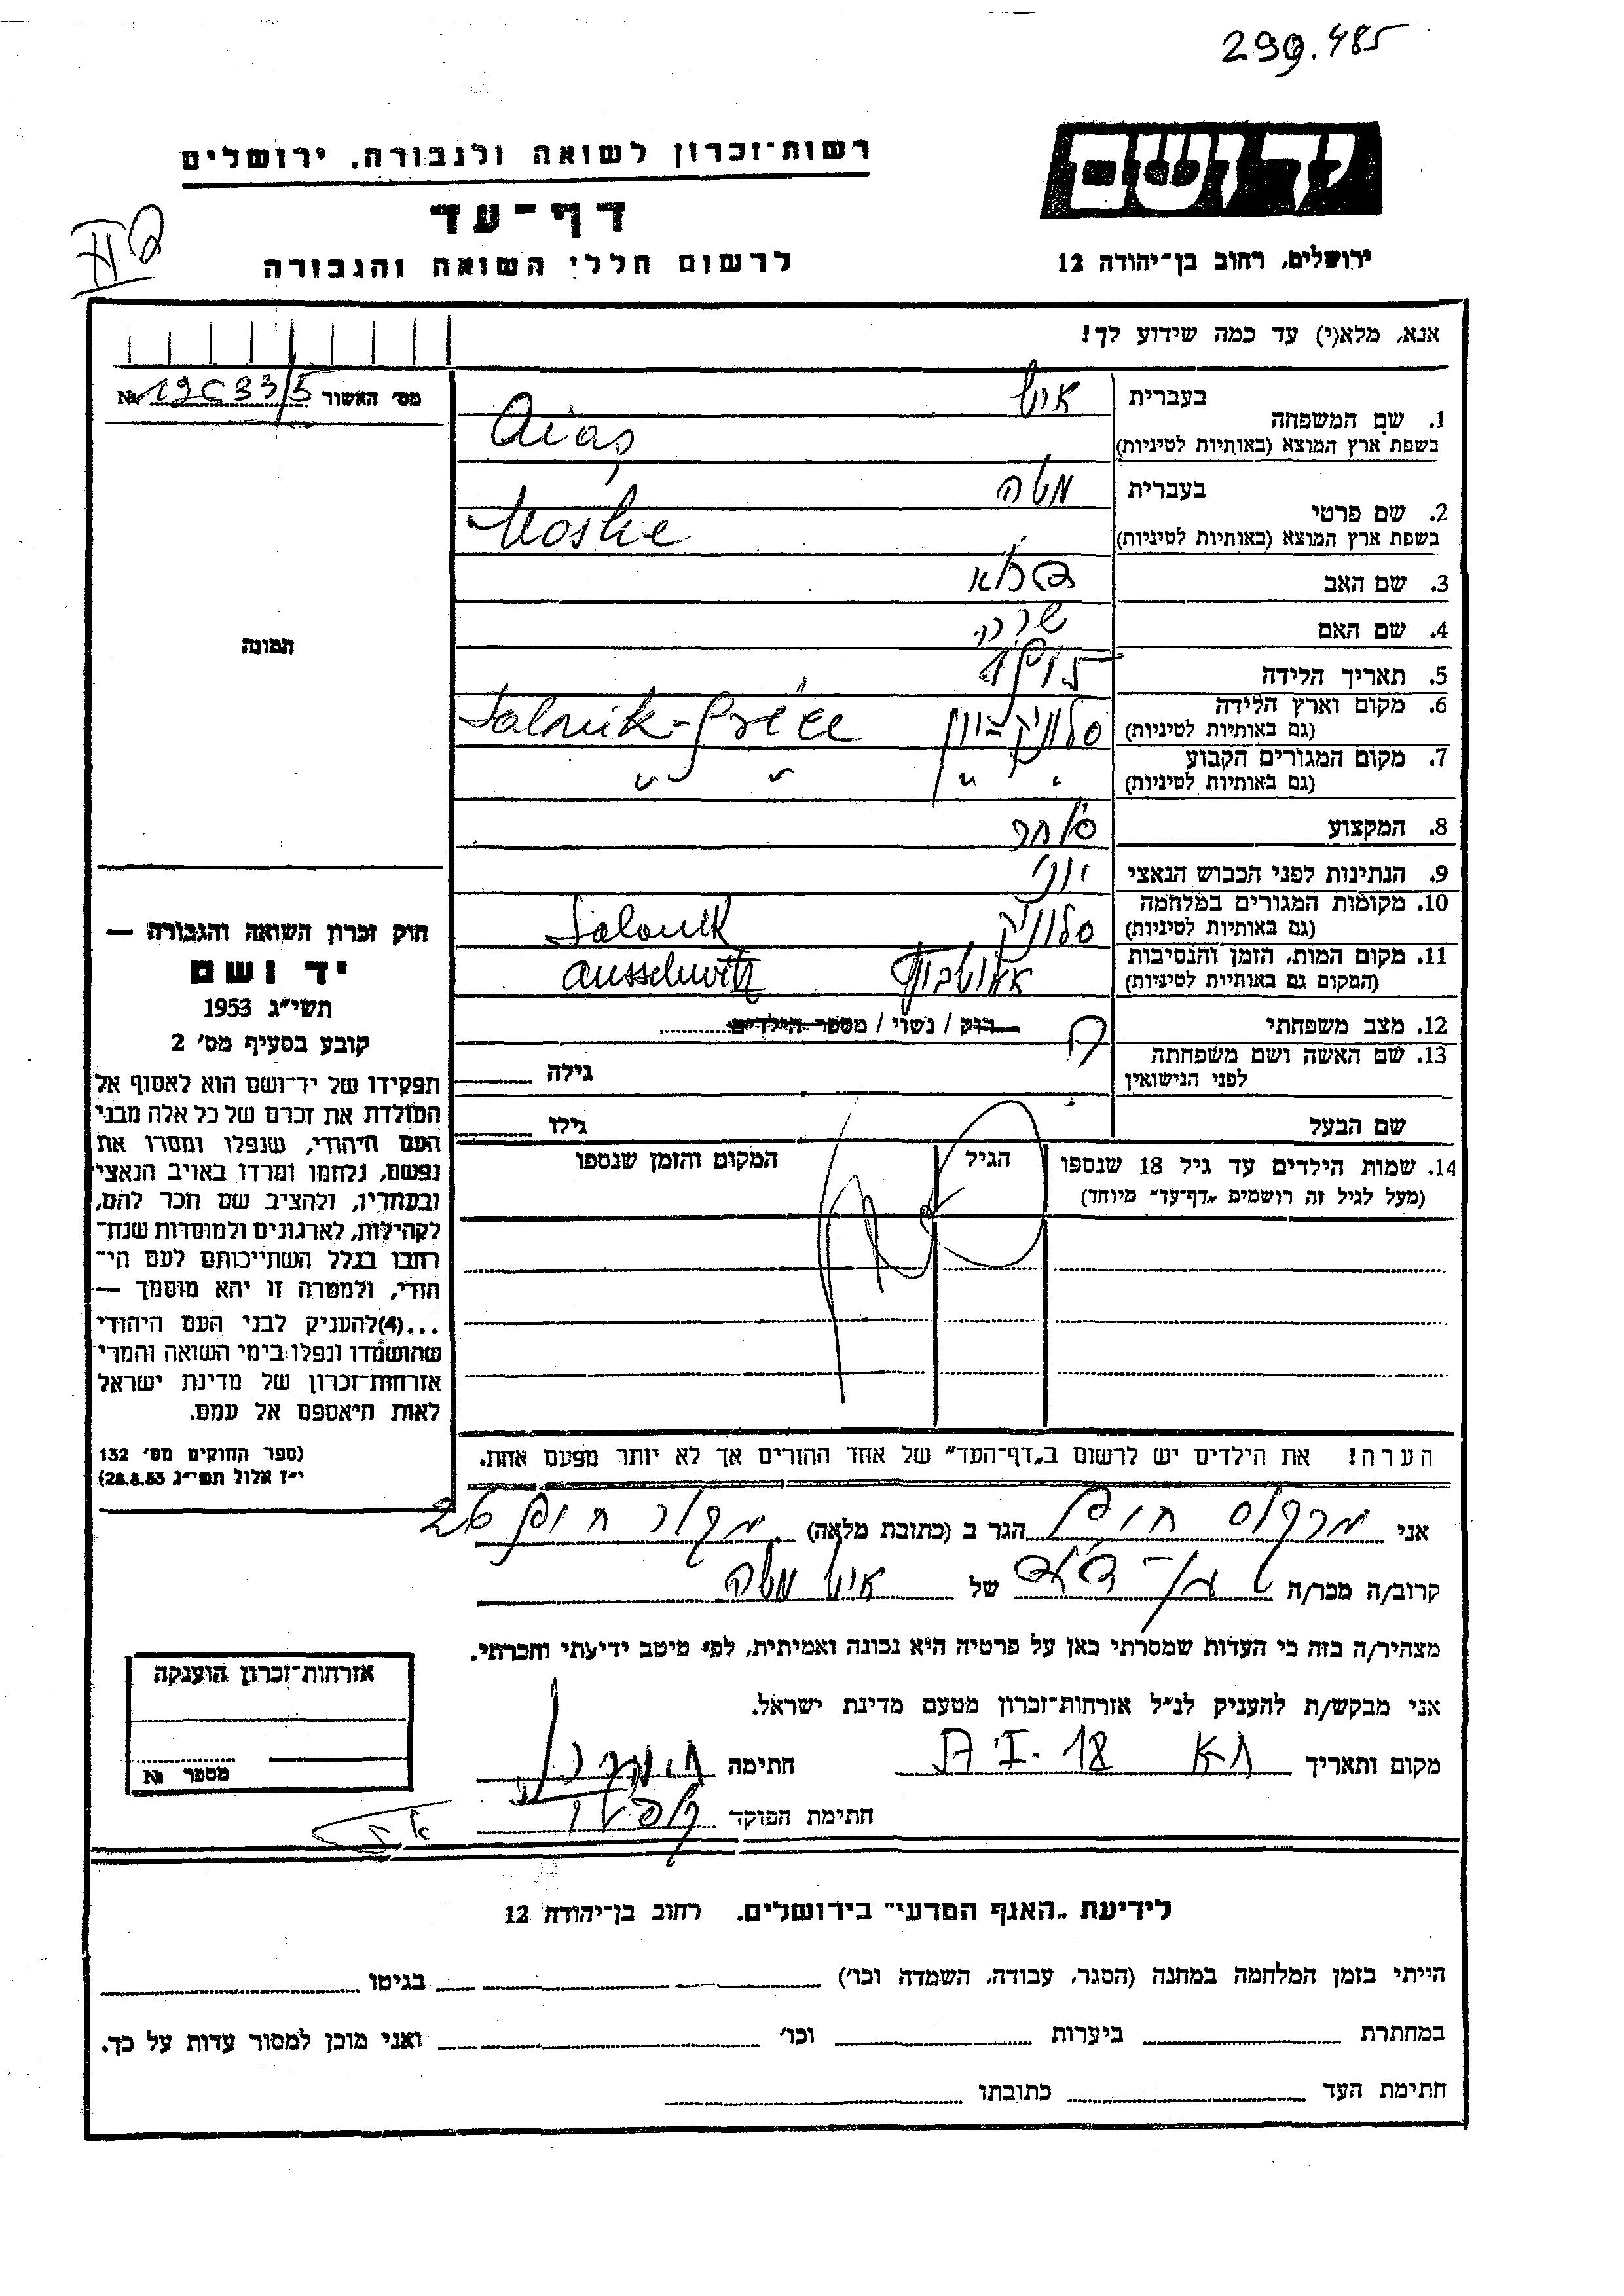 299.485
רשות־זכרון לשואה ולגבורה, ירושלים
דף־עד
לרשום חללי השואה והגבורה
יד ושם
ירושלים, רחוב בן־יהודה 12
אנא, מלא(י) עד כמה שידוע לך!
מס' האשור №
1. שם המשפחה
בעברית
בשפת ארץ המוצא (באותיות לטיניות)
Aias
2. שם פרטי
בעברית משה
בשפת ארץ המוצא (באותיות לטיניות) Moshe
3. שם האב
4. שם האם שרה
5. תאריך הלידה
6. מקום וארץ הלידה
(גם באותיות לטיניות) סלוניק־יוון Salonik-Gréce
7. מקום המגורים הקבוע
(גם באותיות לטיניות) " " " "
8. המקצוע סוחר
9. הנתינות לפני הכבוש הנאצי יוני
10. מקומות המגורים במלחמה
(גם באותיות לטיניות) סלוניק Salonik
11. מקום המות, הזמן והנסיבות
(המקום גם באותיות לטיניות) Ausschwitz
12. מצב משפחתי רוק / נשוי / מספר הילדים
13. שם האשה ושם משפחתה
לפני הנישואין
גילה
שם הבעל גילו
14. שמות הילדים עד גיל 18 שנספו
(מעל לגיל זה רושמים „דף־עד" מיוחד)
הגיל
המקום והזמן שנספו
תמונה
חוק זכרון השואה והגבורה —
יד ושם
תשי״ג 1953
קובע בסעיף מס' 2
תפקידו של יד־ושם הוא לאסוף אל
המולדת את זכרם של כל אלה מבני
העם היהודי, שנפלו ומסרו את
נפשם, נלחמו ומרדו באויב הנאצי
ובעוזריו, ולהציב שם וזכר להם,
לקהילות, לארגונים ולמוסדות שנח־
רחבו בגלל השתייכותם לעם הי־
הודי, ולמטרה זו יהא מוסמך —
...(4)להעניק לבני העם היהודי
שהושמדו ונפלו בימי השואה והמרי
אזרחות־זכרון של מדינת ישראל
לאות היאספם אל עמם.
(ספר החוקים מס' 132
י״ז אלול תשי״ג 28.8.53)
הערה! את הילדים יש לרשום ב„דף־העד" של אחד ההורים אך לא יותר מפעם אחת.
אני הגר ב (כתובת מלאה)
קרוב/ה מכר/ה של משה
מצהיר/ה בזה כי העדות שמסרתי כאן על פרטיה היא נכונה ואמיתית, לפי מיטב ידיעתי והכרתי.
אני מבקש/ת להעניק לנ״ל אזרחות־זכרון מטעם מדינת ישראל.
מקום ותאריך חתימה
חתימת הפוקד
אזרחות־זכרון הוענקה
מספר №
לידיעת „האגף המדעי" בירושלים, רחוב בן־יהודה 12
הייתי בזמן המלחמה במחנה (הסגר, עבודה, השמדה וכו') בגיטו
במחתרת ביערות וכו' ואני מוכן למסור עדות על כך.
חתימת העד כתובתו